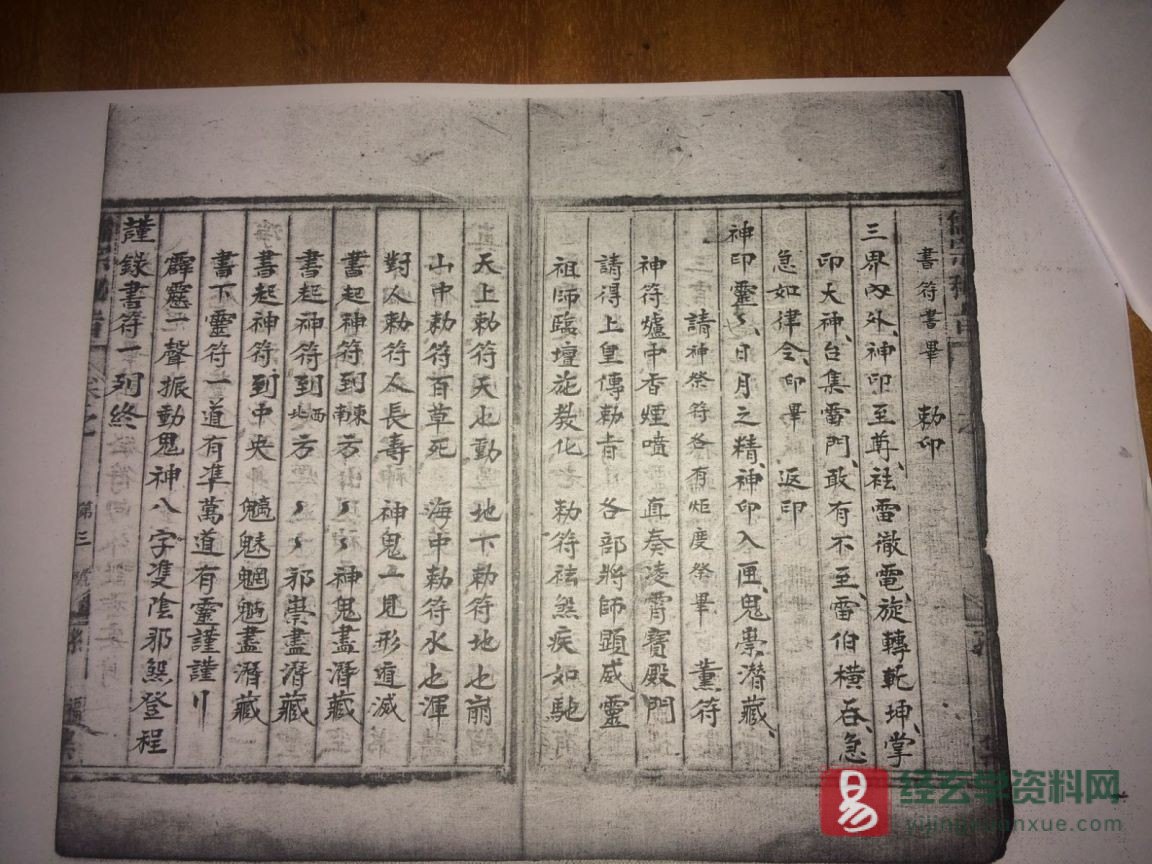 書符書畢 勅印
三界內外、神印至尊、袪雷徹電、旋轉乾坤、掌
印大神、台集雷門、敢有不至、雷伯橫吞、急
急如律令、印畢 返印
神印靈〻、日月之精、神印入匣、鬼祟潛藏、
三書請神祭符各有炬度祭畢 薰符
神符爐中香煙噴 直奏凌霄寶殿門
請得上皇傳勅旨 各部將師顕威靈
祖師臨壇施教化 勅符祛煞疾如馳
天上勅符天也動 地下勅符地也崩
山中勅符百草死 海中勅符水也渾
對人勅符人長壽 神鬼一見形追滅
書起神符到東南方 〻〻神鬼盡潛藏
書起神符到西北方 〻〻邪祟盡潛藏
書起神符到中央 魑魅魍魎盡潛藏
書下靈符一道有準萬道有靈謹謹〢
霹靂一聲振動鬼神八字雙陰邪煞登程
謹錄書符一列終
第三
经玄学资料网
yijingxuanxue.com
易